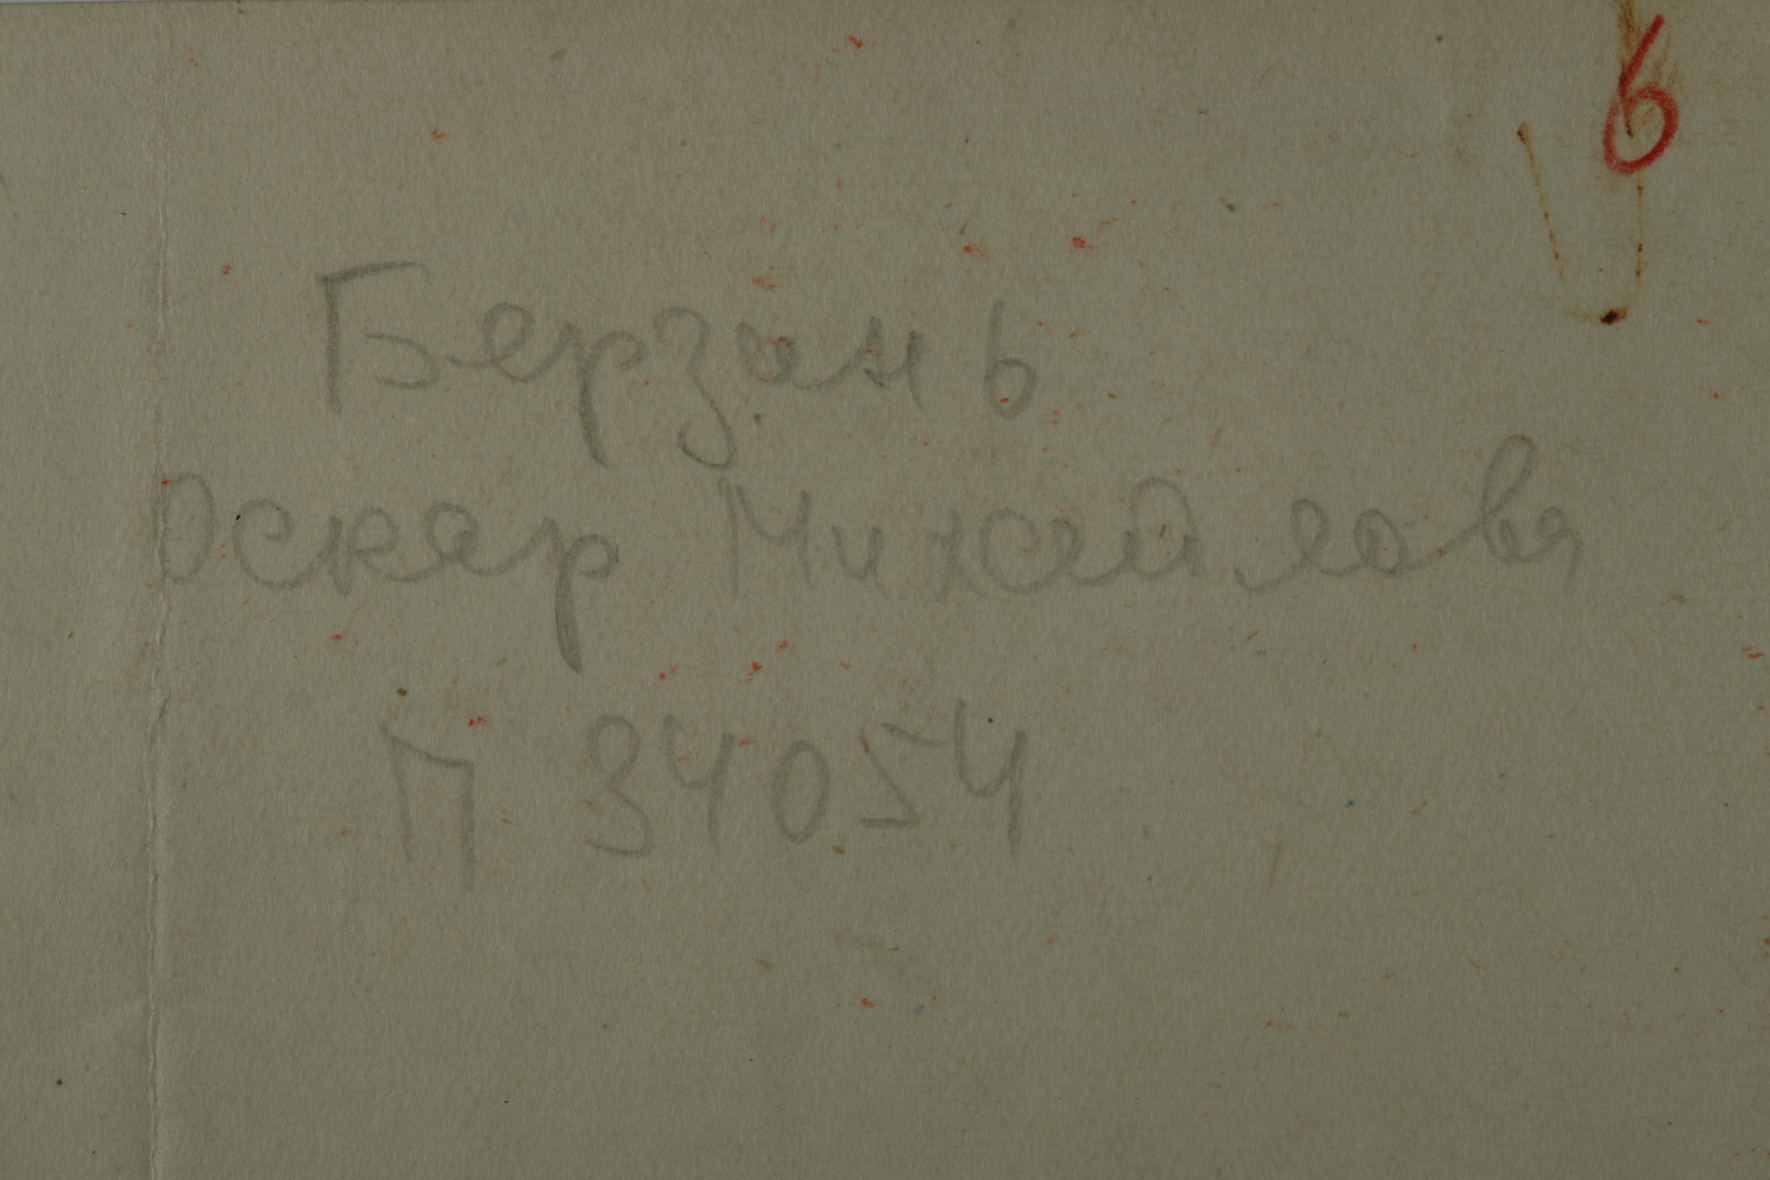 6
Берзинь
Оскар Михайлов
П 34054